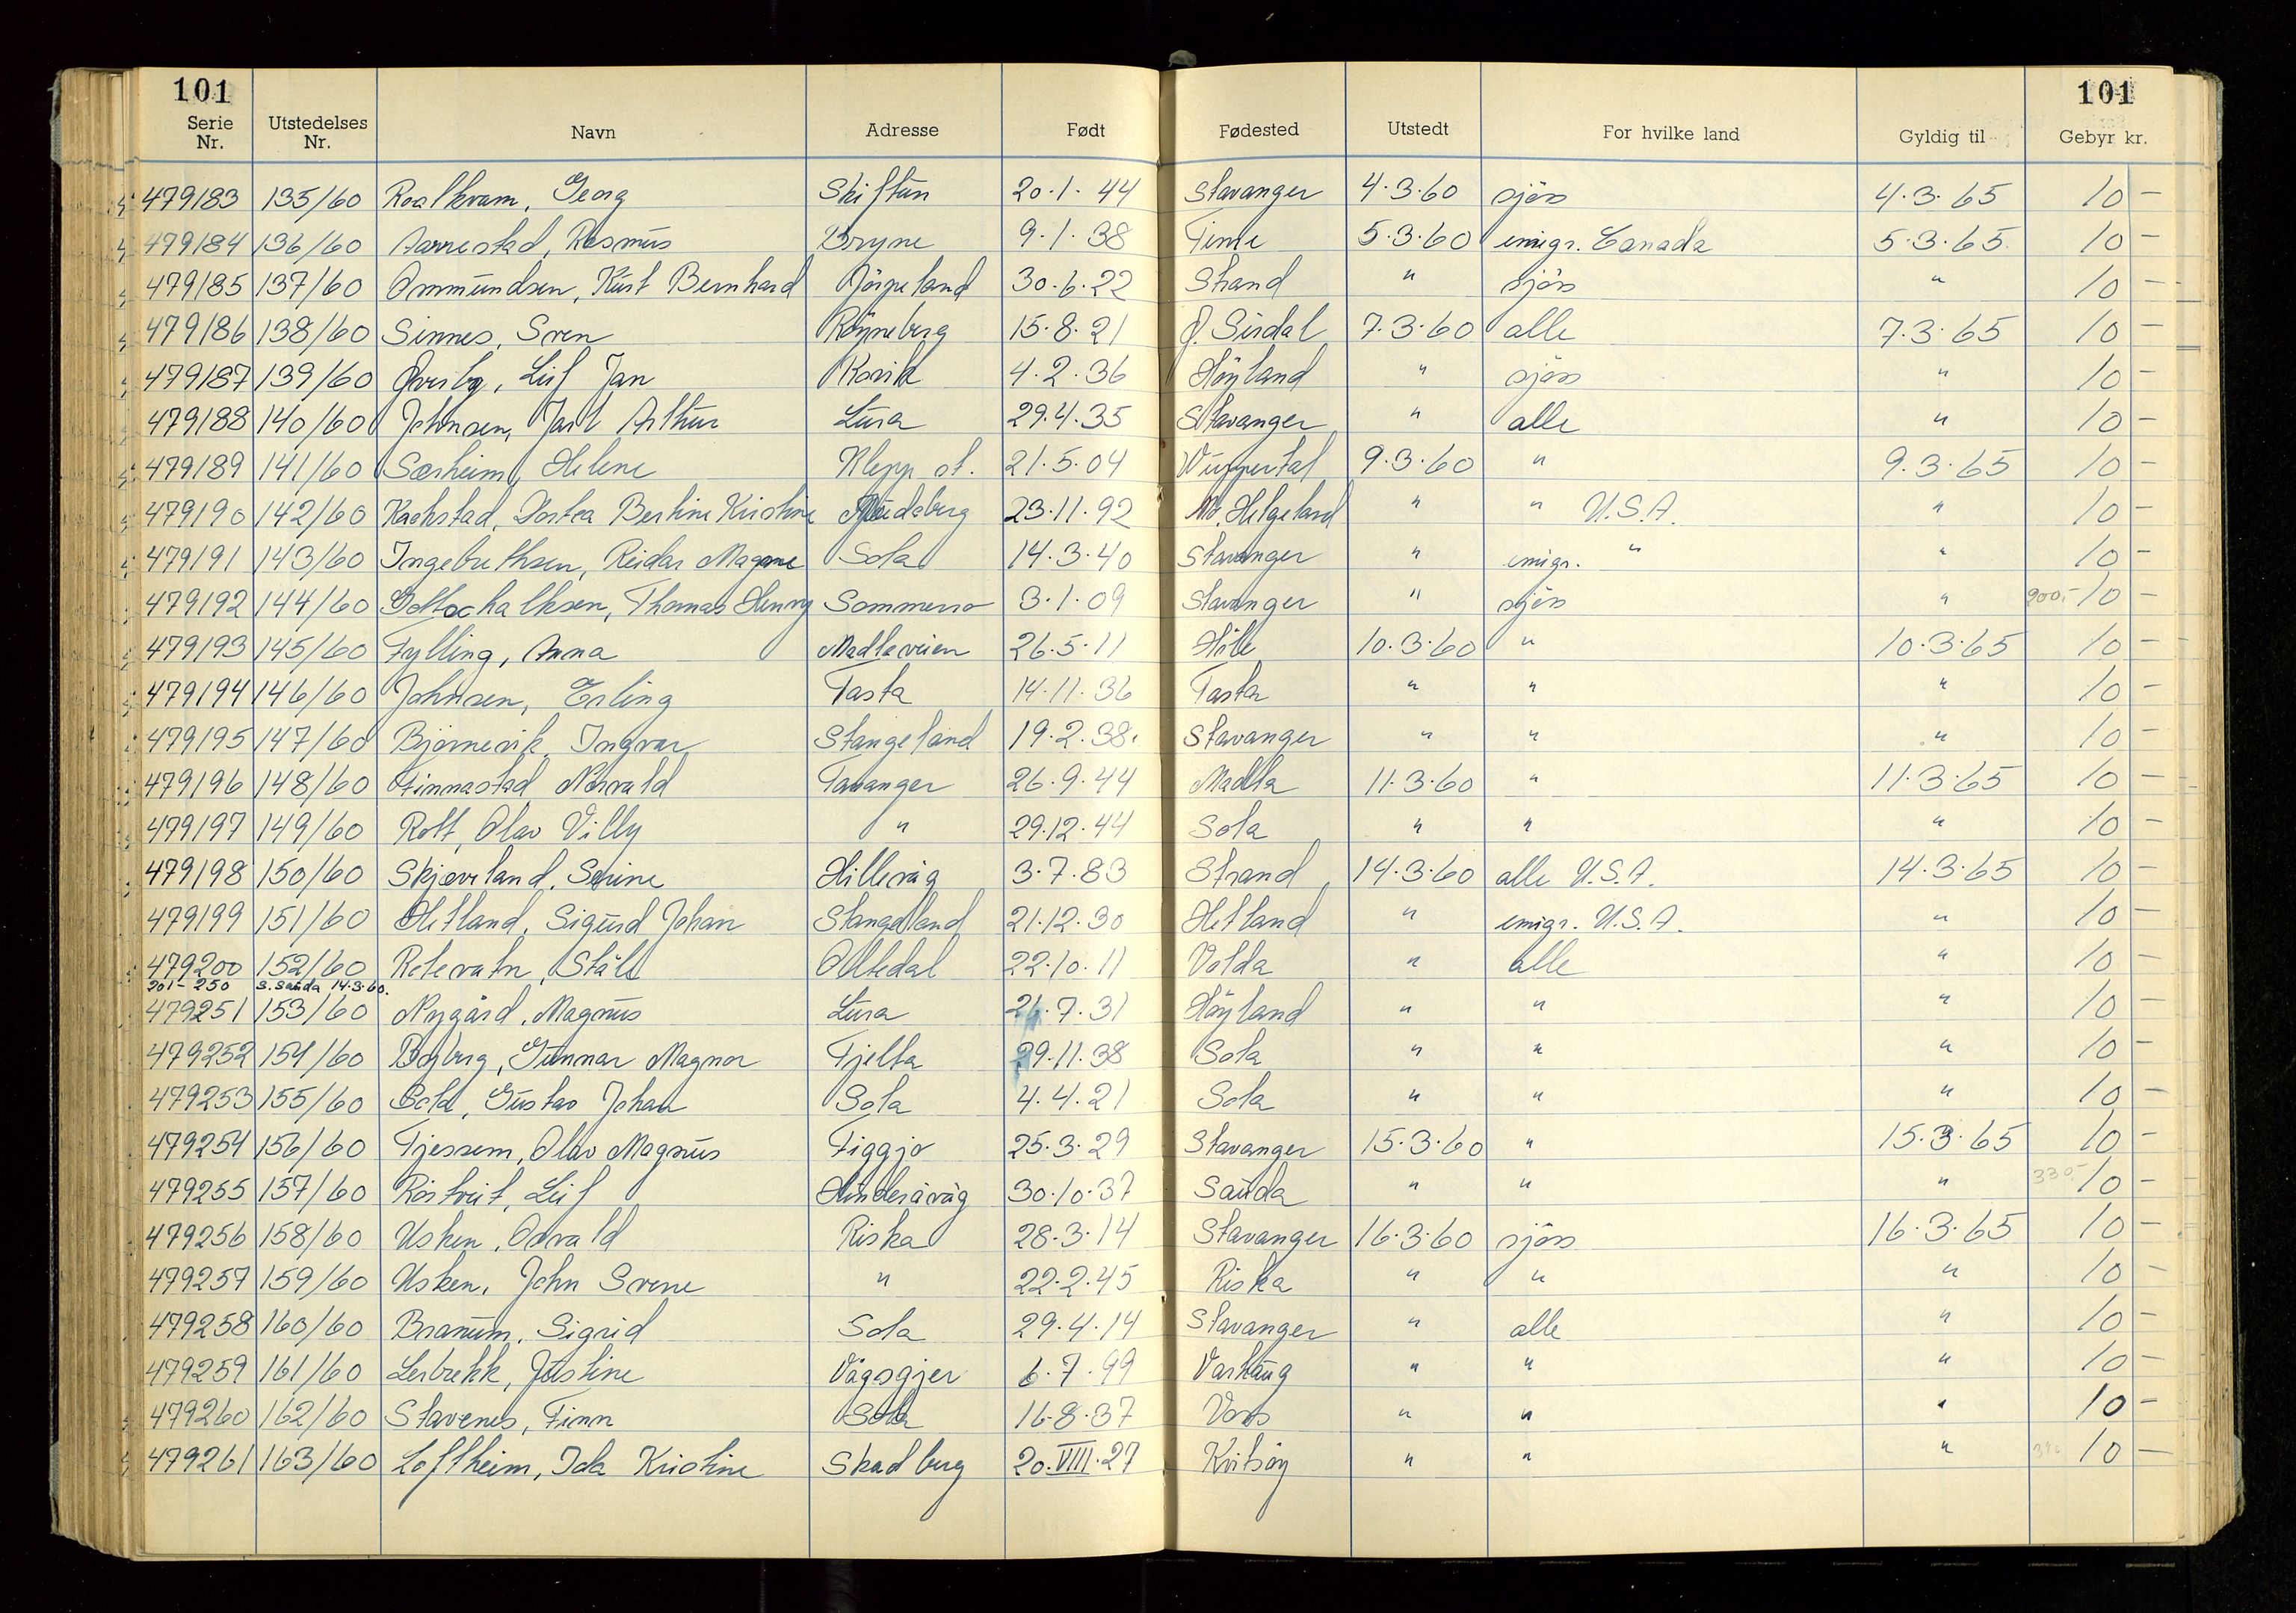 101 101
Serie Nr. Utstedelses Nr. Navn Adresse Født Fødested Utstedt For hvilke land Gyldig til Gebyr kr.
479183 135/60 Roalkvam, Georg Skiftun 20.1.44 Stavanger 4.3.60 sjøss 4.3.65 10 –
479184 136/60 Aarrestad, Rasmus Bryne 9.1.38 Time 5.3.60 emigr. Canada 5.3.65 10 –
479185 137/60 Ommundsen, Kurt Bernhard Jörpeland 30.6.22 Strand " sjöss " 10 –
479186 138/60 Sinnes, Sven Röyneberg 15.8.21 Ø. Sirdal 7.3.60 alle 7.3.65 10 –
479187 139/60 Øverby, Leif Jan Korvik 4.2.36 Höyland " sjöss " 10 –
479188 140/60 Johnsen, Jarl Arthur Lura 29.4.35 Stavanger " alle " 10 –
479189 141/60 Særheim, Helene Klepp st. 21.5.04 Wuppertal 9.3.60 " 9.3.65 10 –
479190 142/60 Kachstad, Dortea Bertine Kristine 23.11.92 Mo, Helgeland " " U.S.A. " 10 –
479191 143/60 Ingebrethsen, Reidar Magne Sola 14.3.40 Stavanger " emigr. " " 10 –
479192 144/60 Gottschalksen, Thomas Henry Sommerro 3.1.09 Stavanger " sjöss " 900,- 10 –
479193 145/60 Fylling, Anna Madlaveien 26.5.11 Höle 10.3.60 " 10.3.65 10 –
479194 146/60 Johnsen, Erling Tasta 14.11.36 Tasta " " " 10 –
479195 147/60 Bjørnevik, Ingvar Stangeland 19.2.38. Stavanger " " " 10 –
479196 148/60 Finnastad Norvald Tananger 26.9.44 Madla 11.3.60 " 11.3.65 10 –
479197 149/60 Rott, Olav Villy " 29.12.44 Sola " " " 10 –
479198 150/60 Skjæveland, Serine Hillevåg 3.7.83 Strand 14.3.60 alle U.S.A. 14.3.65 10 –
479199 151/60 Hetland, Sigurd Johan Stangeland 21.12.30 Hetland " emigr. U.S.A. " 10 –
479200 152/60 Rotevatn, Ståle Oltedal 22.10.11 Volda " alle " 10 –
201 – 250 s. Sauda 14.3.60.
479251 153/60 Nygård, Magnus Lura 26.7.31 Höyland " " " 10 –
479252 154/60 Bogberg, Gunnar Magnor Fjelta 29.11.38 Sola " " " 10 –
479253 155/60 Sola, Gustav Johan Sola 4.4.21 Sola " " " 10 –
479254 156/60 Tjessem, Olav Magnus Figgjo 25.3.29 Stavanger 15.3.60 " 15.3.65 10 –
479255 157/60 Röstveit, Leif Hinderåvåg 30.10.37 Sauda " " " 330,- 10 –
479256 158/60 Usken, Odvald Riska 28.3.14 Stavanger 16.3.60 sjöss 16.3.65 10 –
479257 159/60 Usken, John Sverre " 22.2.45 Riska " " " 10 –
479258 160/60 Branum, Sigrid Sola 29.4.14 Stavanger " alle " 10 –
479259 161/60 Lerbrekk, Justine Vågsgjer 6.7.99 Varhaug " " " 10 –
479260 162/60 Stavenes, Finn Sola 16.8.37 Voss " " " 10 –
479261 163/60 Loftheim, Ida Kristine Skadberg 20.VIII.27 Kvitsöy " " " 10 –